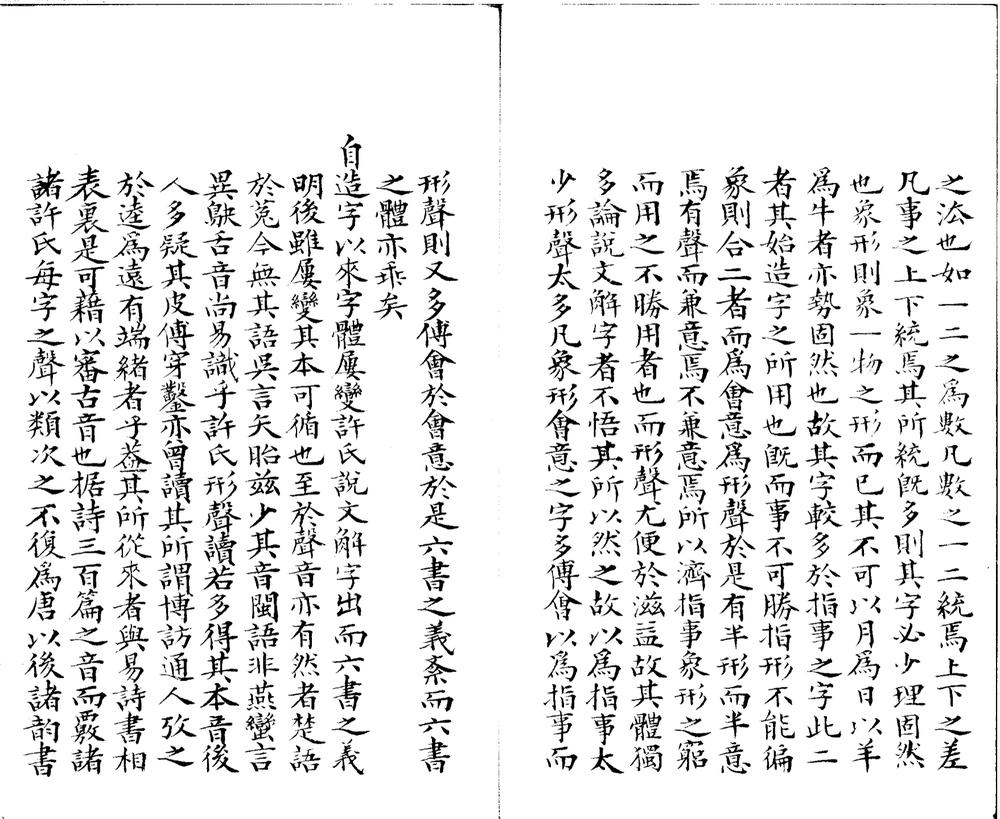 之法也如一二之爲數凡數之一二統焉上下之差
凡事之上下統焉其所統旣多則其字必少理固然
也象形則象一物之形而已其不可以月爲日以羊
爲牛者亦勢固然也故其字較多於指事之字此二
者其始造字之所用也旣而事不可勝指形不能徧
象則合二者而爲會意爲形聲於是有半形而半意
焉有聲而兼意焉不兼意焉所以濟指事象形之窮
而用之不勝用者也而形聲尤便於滋益故其體獨
多論說文解字者不悟其所以然之故以爲指事太
少形聲太多凡象形會意之字多傅會以爲指事而
形聲則又多傅會於會意於是六書之義紊而六書
之體亦乖矣
自造字以來字體屢變許氏說文解字出而六書之義
明後雖屢變其本可循也至於聲音亦有然者楚語
於菟今無其語吳言矢胎兹少其音閩語非燕蠻言
異鴃舌音尚易識乎許氏形聲讀若多得其本音後
人多疑其皮傅穿鑿亦曾讀其所謂博訪通人攷之
於逵爲遠有端緒者乎葢其所從來者與易詩書相
表裏是可藉以審古音也据詩三百篇之音而覈諸
諸許氏每字之聲以類次之不復爲唐以後諸韵書